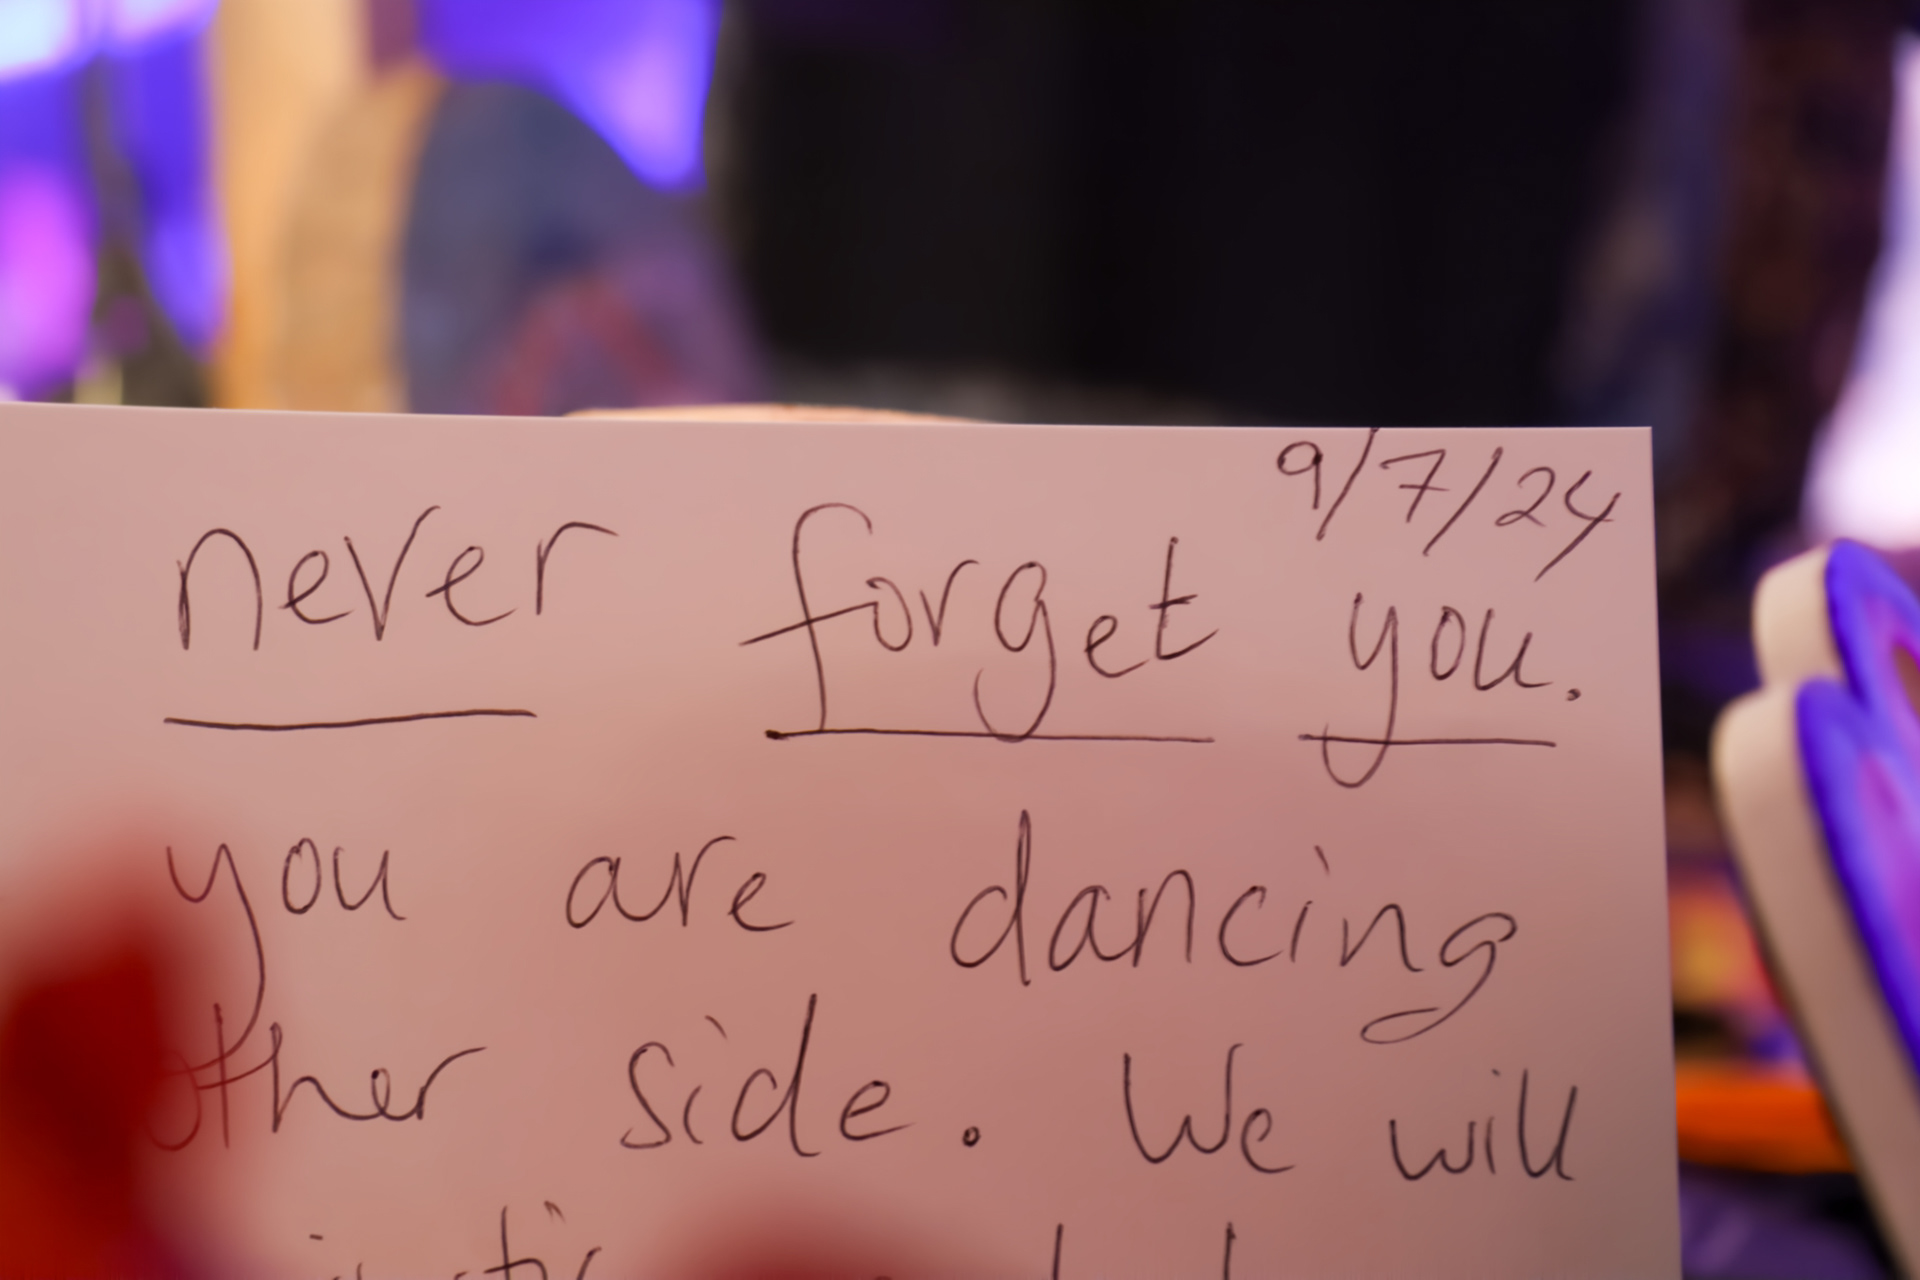 9/7/24
never forget you.
you are dancing
other side. We will